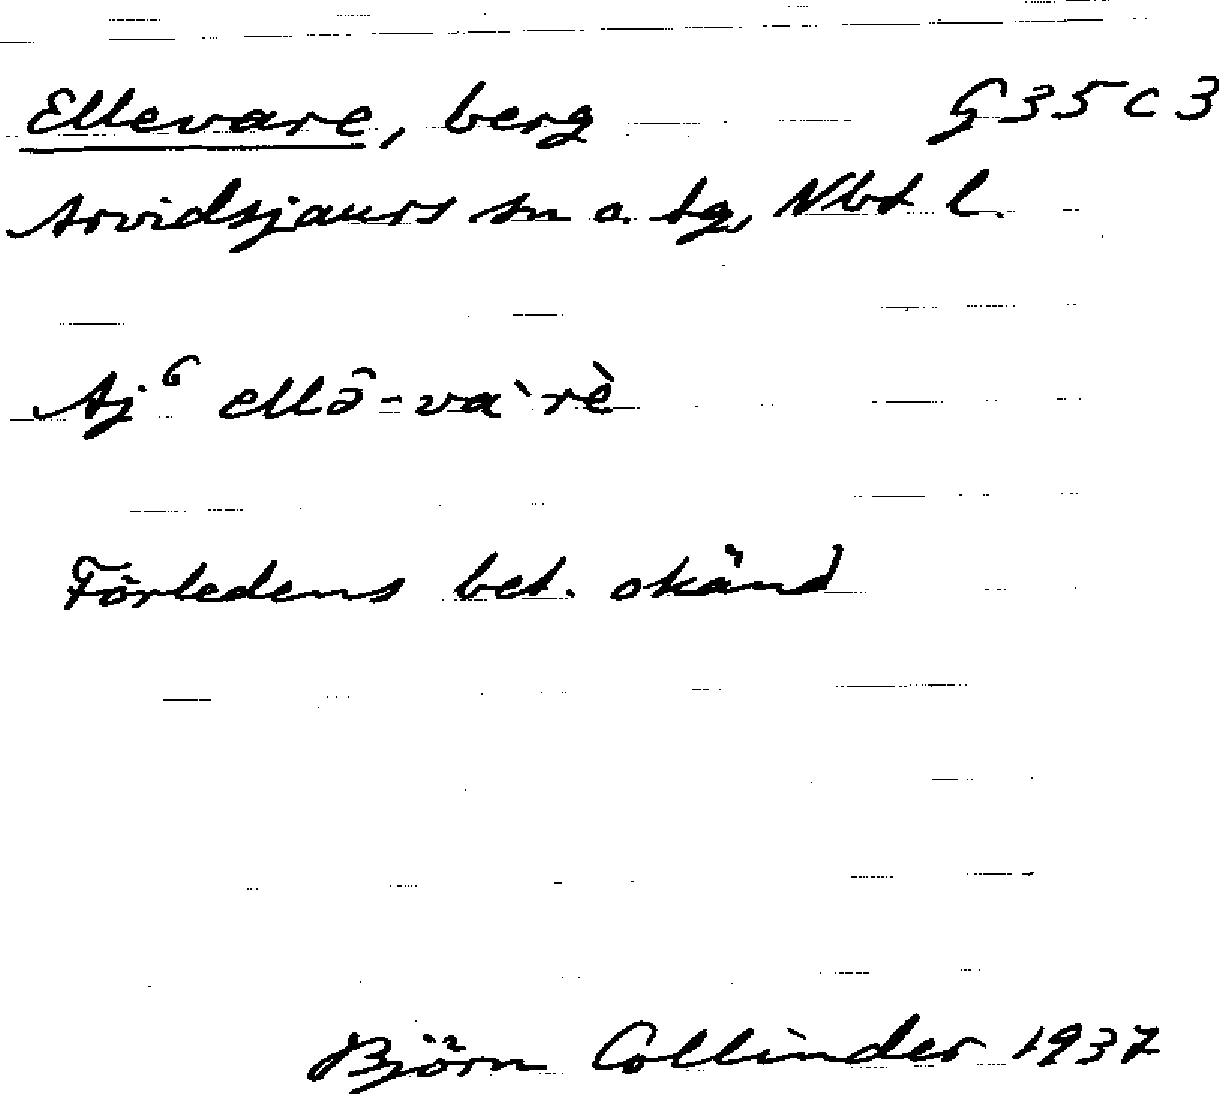 Ellevare, berg G35c3
Arvidsjaurs sn o. tg, Nbt l.
Aj⁶ ellə̑-va`rè
Förledens bet. okänd
Björn Collinder 1937